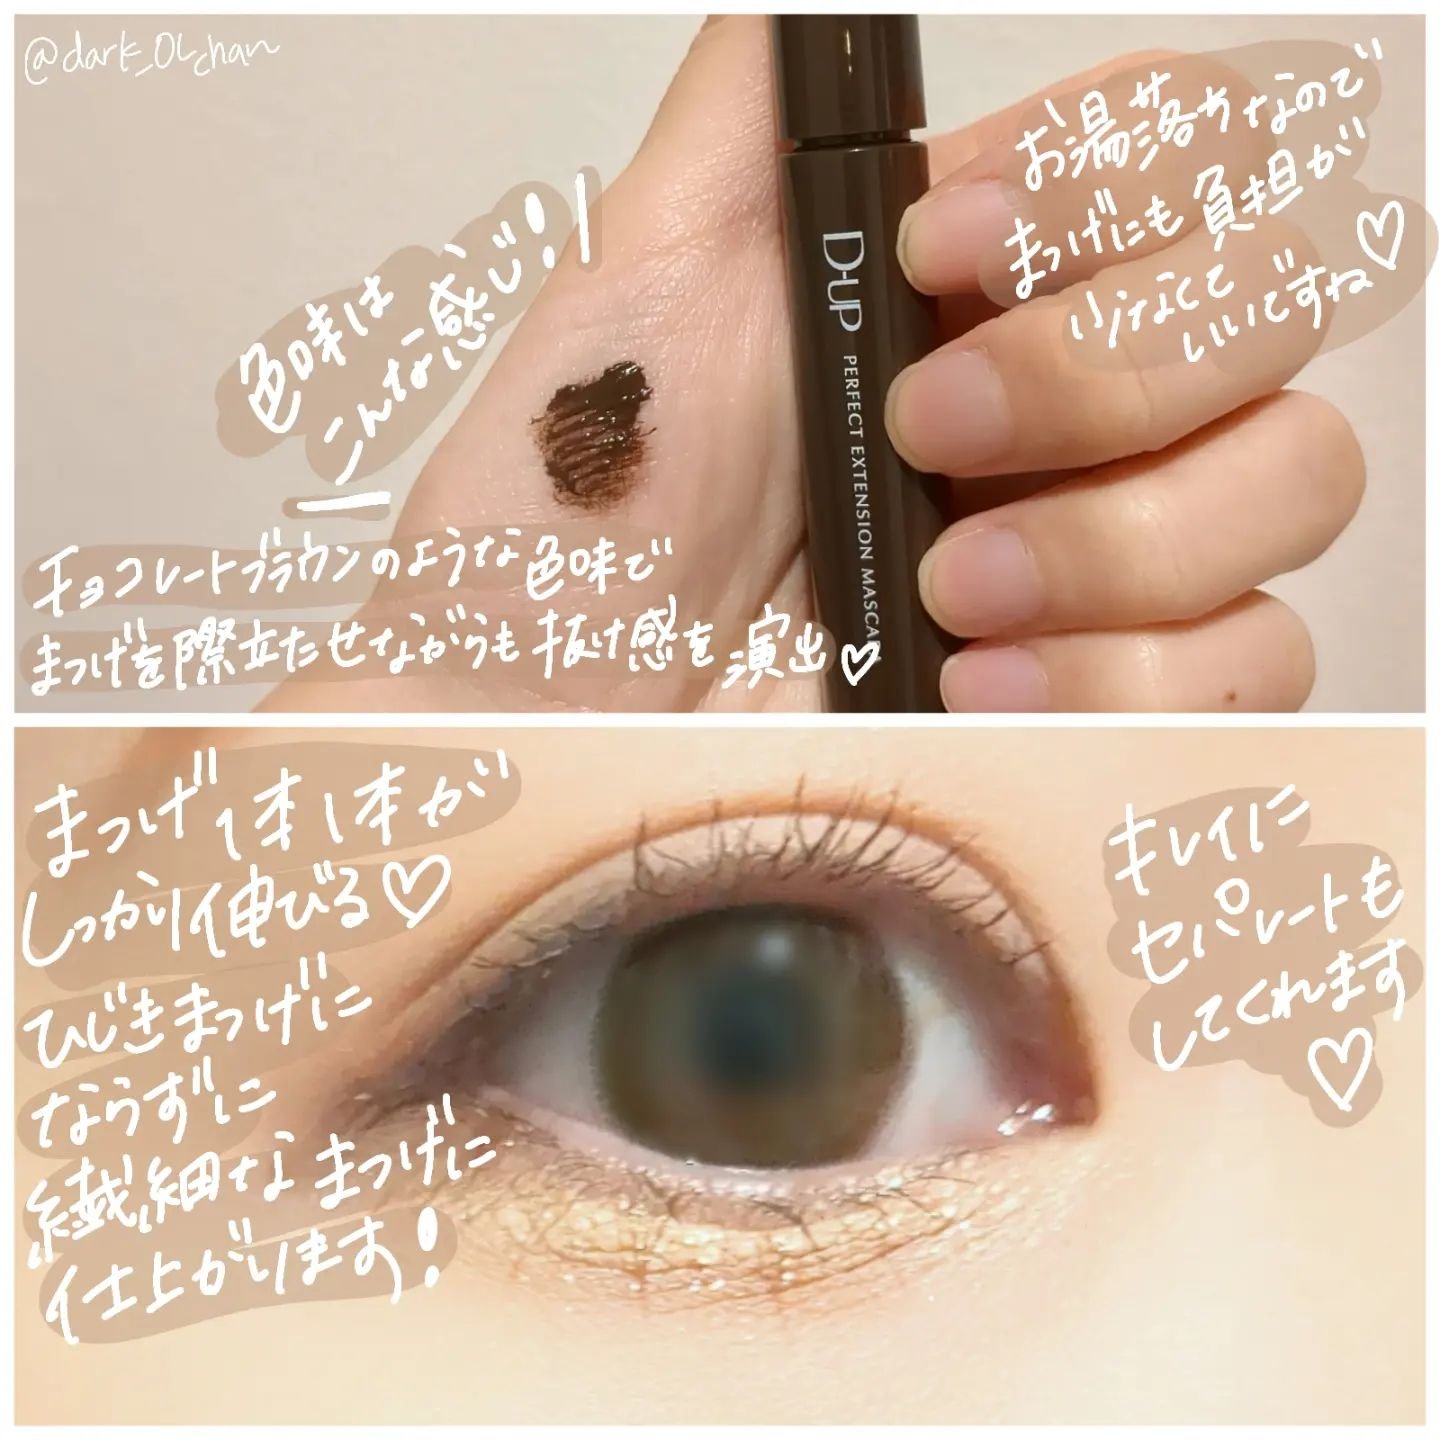 @dark_OLchan
お湯落ちなので
まつげにも負担が
少なくて
いいですね♡
色味は
こんな感じ!!
D-UP
PERFECT EXTENSION MASCARA
チョコレートブラウンのような色味で
まつげを際立たせながらも抜け感を演出♡
まつげ1本1本が
しっかり伸びる♡
ひじきまつげに
ならずに
繊細なまつげに
仕上がります!
キレイに
セパレートも
してくれます
♡